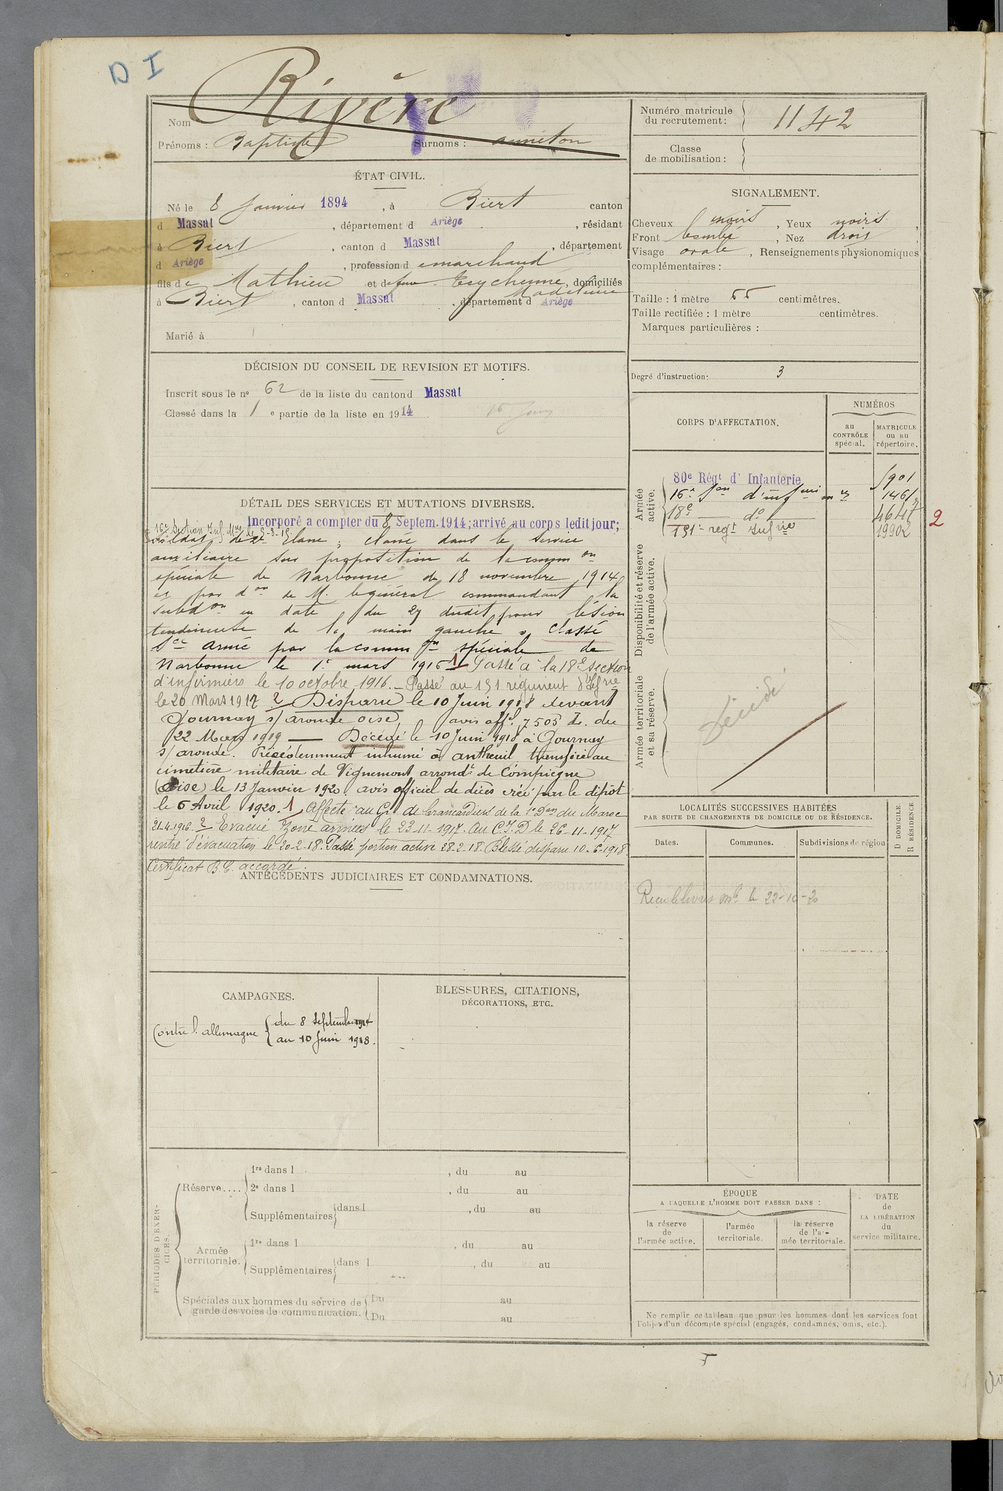 D I
Rivère
Nom
Prénoms : Baptiste Surnoms :
Numéro matricule
du recrutement : 1142
Classe
de mobilisation :
ÉTAT CIVIL.
Né le 8 Janvier 1894, à Biert canton
d Massat, département d Ariège, résidant
à Biert, canton d Massat, département
d Ariège, profession d marchand
fils de Mathieu et de feue Eychenne Madeleine, domiciliés
à Biert, canton d Massat, département d Ariège
Marié à
SIGNALEMENT.
Cheveux noirs, Yeux noirs,
Front bombé, Nez droit,
Visage ovale, Renseignements physionomiques
complémentaires :
Taille : 1 mètre 55 centimètres.
Taille rectifiée : 1 mètre centimètres.
Marques particulières :
Degré d'instruction : 3
DÉCISION DU CONSEIL DE REVISION ET MOTIFS.
Inscrit sous le n° 62 de la liste du canton d Massat
Classé dans la 1 e partie de la liste en 1914
CORPS D'AFFECTATION.
NUMÉROS
au
CONTRÔLE
spécial.
MATRICULE
ou au
répertoire.
Armée
active.
80e Régt d'Infanterie
16e Son d'infiers
18e do
151e regt Infrie
1461
4647
2
Disponibilité et réserve
de l'armée active.
Armée territoriale
et sa réserve.
Décédé
DÉTAIL DES SERVICES ET MUTATIONS DIVERSES.
Incorporé à compter du 8 Septem. 1914; arrivé au corps ledit jour;
soldat de 2e classe; classé dans le service
auxiliaire sur proposition de la common
spéciale de Narbonne du 18 novembre 1914
et par don de M. le général commandant la
subdon en date du 27 dudit pour lésion
tendineuse de la main gauche. Classé
sce armé par la common spéciale de
Narbonne le 1er mars 1916 1 Passé à la 18e section
d'infirmiers le 10 octobre 1916. - Passé au 151 régiment d'Infrie
le 20 Mars 1917 2 Disparu le 10 Juin 1918 devant
Gournay s/ aronde oise, avis offl 7505 D. du
22 Mars 1919 — Décédé le 10 Juin 1918 à Gournay
s/ aronde. Précédemment inhumé à antheuil transféré au
cimetière militaire de Vignemont arrondt de Compiègne
(Oise) le 13 Janvier 1920 avis officiel de décès créé par le dépôt
le 6 Avril 1920. 1 Affecté au
21.4.1916. 2 Evacué Zone armées le 23-11-1917. Au C.I.D le 26-11-1917
rentré d'évacuation le 20-2-18. Passé portion active 28.2.18. Blessé disparu 10.6.1918
Certificat B.C. accordé.
ANTÉCÉDENTS JUDICIAIRES ET CONDAMNATIONS.
LOCALITÉS SUCCESSIVES HABITÉES
PAR SUITE DE CHANGEMENTS DE DOMICILE OU DE RÉSIDENCE.
D DOMICILE
R RÉSIDENCE
Dates.
Communes.
Subdivisions de région
le 22-10-20
CAMPAGNES.
Contre l'allemagne du 8 Septembre 1914
au 10 Juin 1918.
BLESSURES, CITATIONS,
DÉCORATIONS, ETC.
PÉRIODES D'EXER-
CICES.
Réserve....
1re dans l , du au
2e dans l , du au
Supplémentaires dans l , du au
Armée
territoriale.
1re dans l , du au
Supplémentaires dans l , du au
Spéciales aux hommes du service de
garde des voies de communication.
Du au
Du au
ÉPOQUE
A LAQUELLE L'HOMME DOIT PASSER DANS :
la réserve
de
l'armée active.
l'armée
territoriale.
la réserve
de l'ar-
mée territoriale.
DATE
de
LA LIBÉRATION
du
service militaire.
Ne remplir ce tableau que pour les hommes dont les services font
l'objet d'un décompte spécial (engagés, condamnés, omis, etc.).